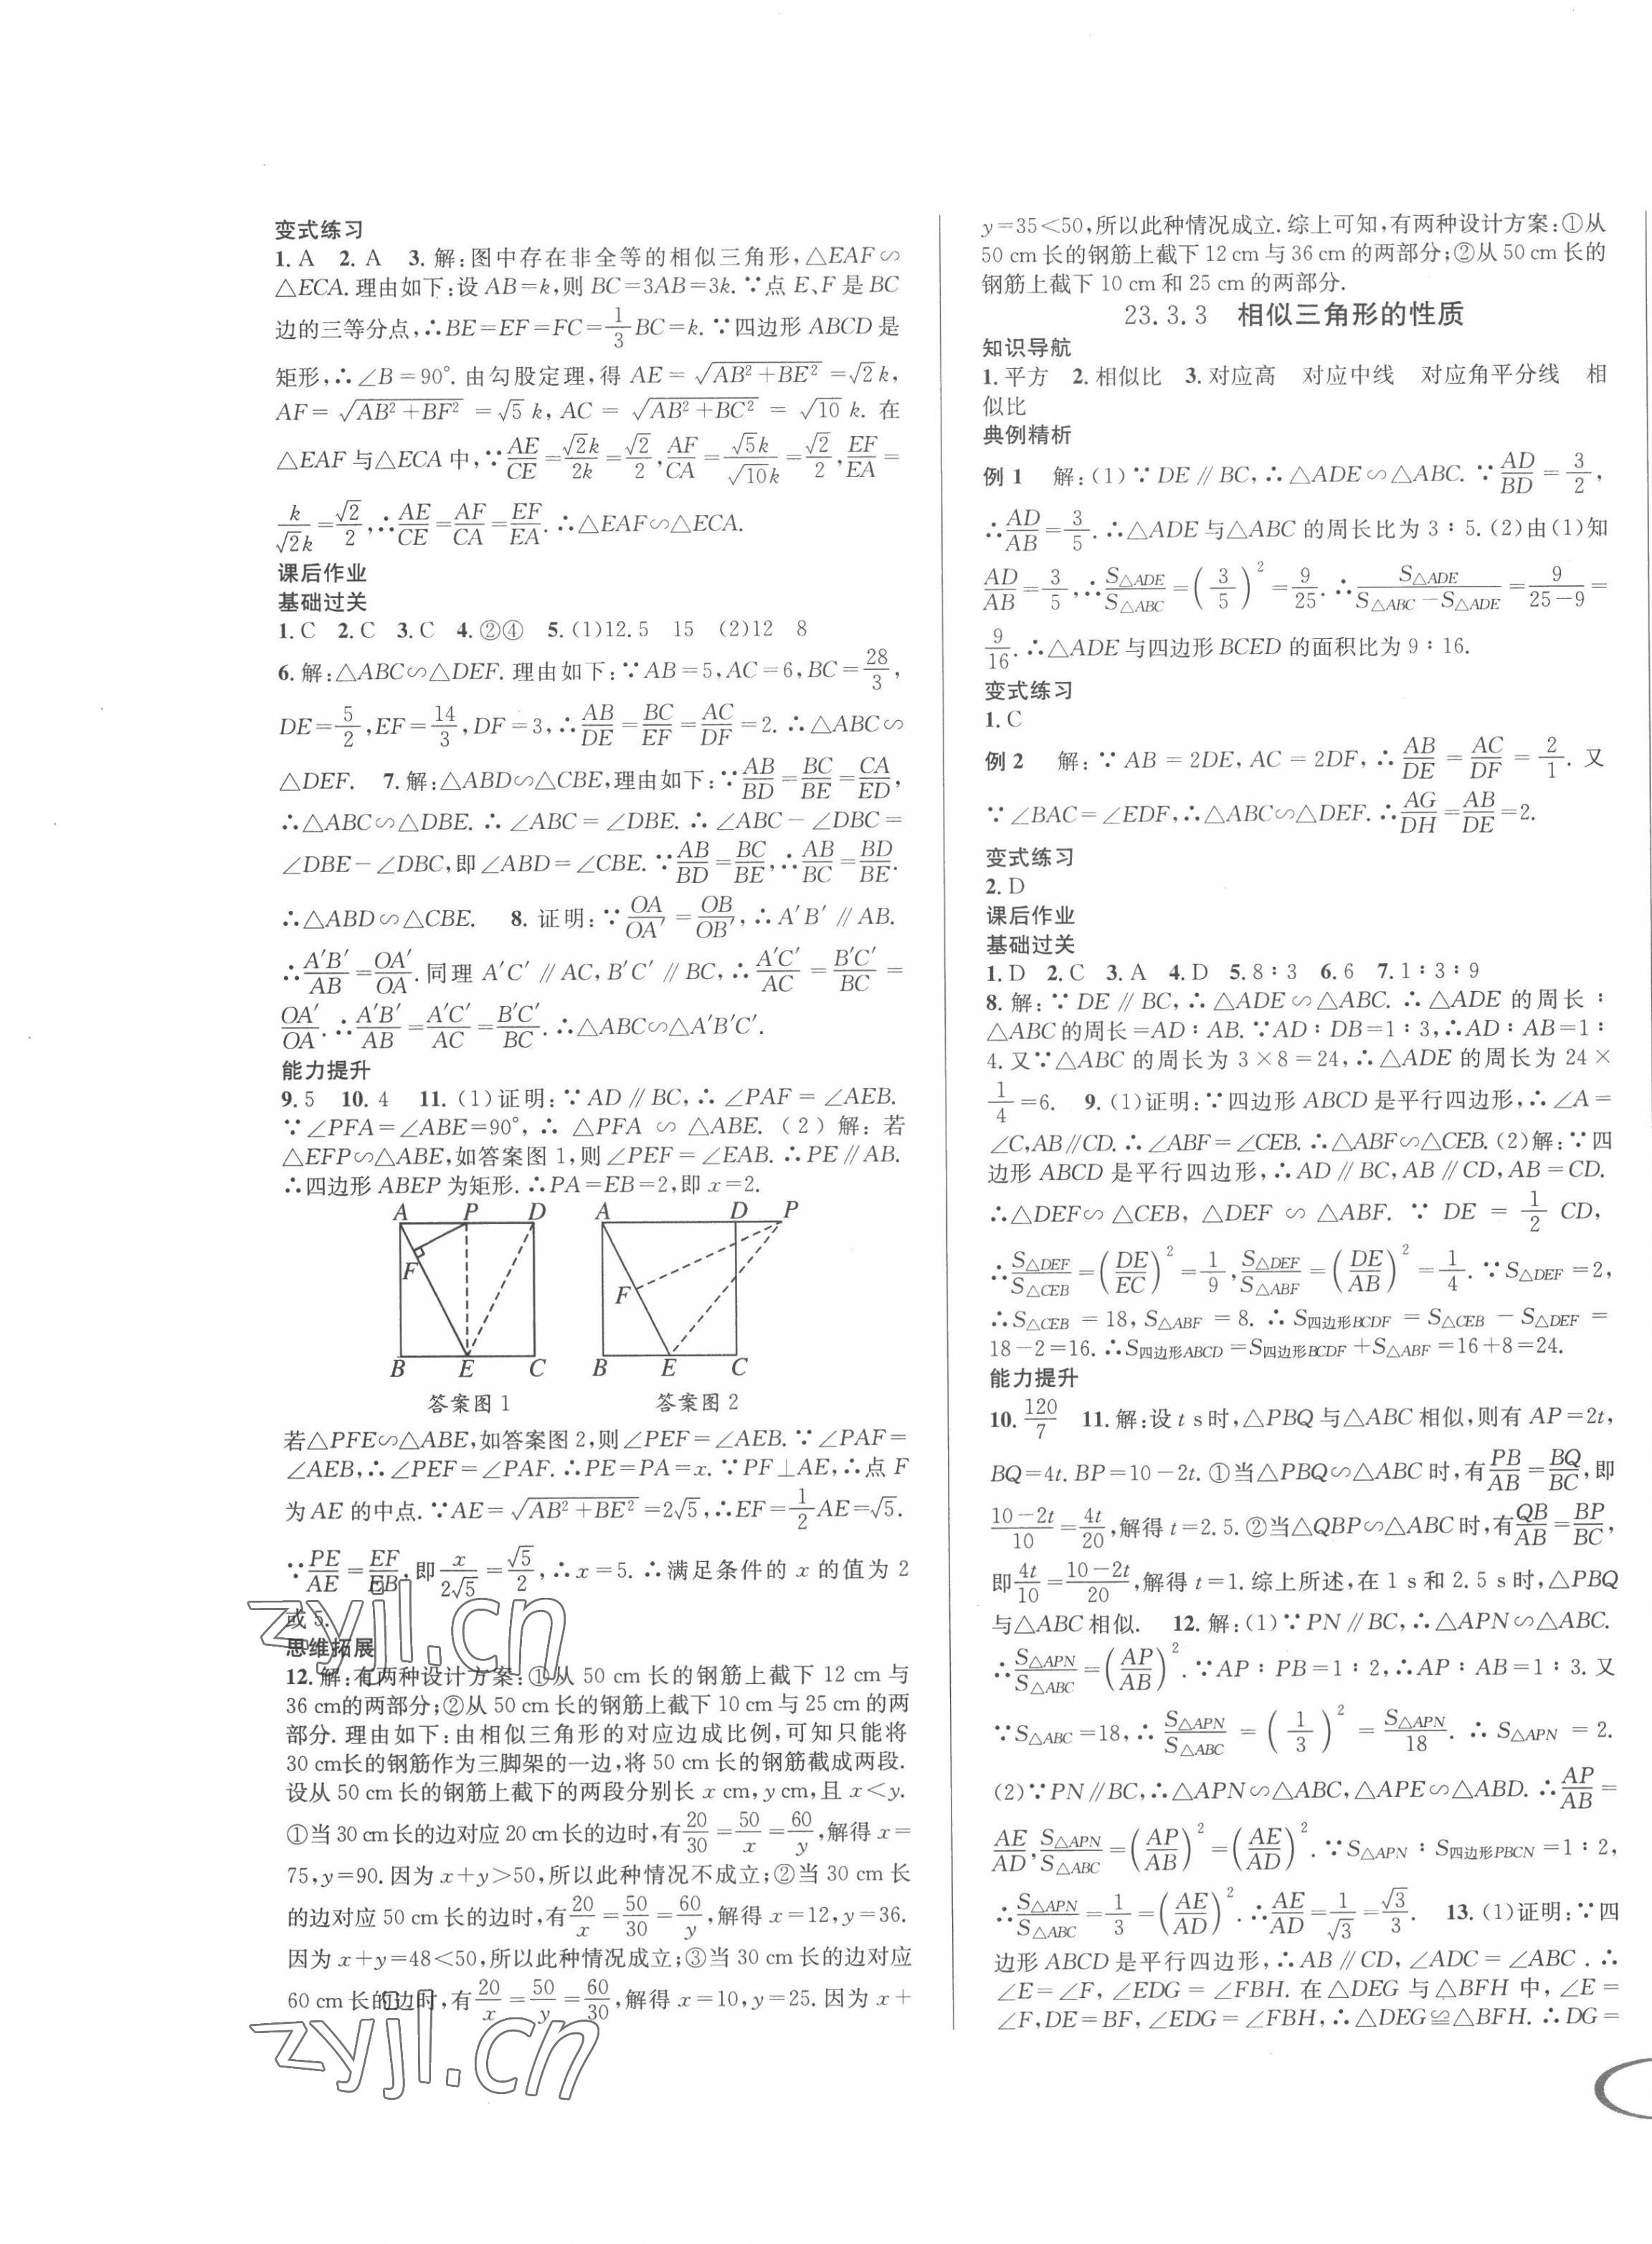 变式练习
1. A 2. A 3. 解:图中存在非全等的相似三角形,△EAF∽
△ECA. 理由如下:设 AB=k,则 BC=3AB=3k. ∵点 E、F 是 BC
边的三等分点,∴BE=EF=FC=1/3 BC=k. ∵四边形 ABCD 是
矩形,∴∠B=90°. 由勾股定理,得 AE=√(AB²+BE²)=√2k,
AF=√(AB²+BF²)=√5 k, AC=√(AB²+BC²)=√10 k. 在
△EAF 与△ECA 中,∵AE/CE=√2k/2k=√2/2,AF/CA=√5k/√10k=√2/2,EF/EA=
k/√2k=√2/2,∴AE/CE=AF/CA=EF/EA. ∴△EAF∽△ECA.
课后作业
基础过关
1. C 2. C 3. C 4. ②④ 5. (1)12.5 15 (2)12 8
6. 解:△ABC∽△DEF. 理由如下:∵AB=5,AC=6,BC=28/3,
DE=5/2,EF=14/3,DF=3,∴AB/DE=BC/EF=AC/DF=2. ∴△ABC∽
△DEF. 7. 解:△ABD∽△CBE,理由如下:∵AB/BD=BC/BE=CA/ED,
∴△ABC∽△DBE. ∴∠ABC=∠DBE. ∴∠ABC-∠DBC=
∠DBE-∠DBC,即∠ABD=∠CBE. ∵AB/BD=BC/BE,∴AB/BC=BD/BE.
∴△ABD∽△CBE. 8. 证明:∵OA/OA′=OB/OB′,∴A′B′∥AB.
∴A′B′/AB=OA′/OA. 同理 A′C′∥AC,B′C′∥BC,∴A′C′/AC=B′C′/BC=
OA′/OA. ∴A′B′/AB=A′C′/AC=B′C′/BC. ∴△ABC∽△A′B′C′.
能力提升
9. 5 10. 4 11. (1)证明:∵AD∥BC,∴∠PAF=∠AEB.
∵∠PFA=∠ABE=90°,∴△PFA∽△ABE. (2)解:若
△EFP∽△ABE,如答案图 1,则∠PEF=∠EAB. ∴PE∥AB.
∴四边形 ABEP 为矩形. ∴PA=EB=2,即 x=2.
A P D
F
B E C
答案图 1
A D P
F
B E C
答案图 2
若△PFE∽△ABE,如答案图 2,则∠PEF=∠AEB. ∵∠PAF=
∠AEB,∴∠PEF=∠PAF. ∴PE=PA=x. ∵PF⊥AE,∴点 F
为 AE 的中点. ∵AE=√(AB²+BE²)=2√5,∴EF=1/2 AE=√5.
∵PE/AE=EF/EB,即 x/2√5=√5/2,∴x=5. ∴满足条件的 x 的值为 2
或 5.
思维拓展
12. 解:有两种设计方案:①从 50 cm 长的钢筋上截下 12 cm 与
36 cm的两部分;②从 50 cm 长的钢筋上截下 10 cm 与 25 cm 的两
部分. 理由如下:由相似三角形的对应边成比例,可知只能将
30 cm长的钢筋作为三脚架的一边,将 50 cm 长的钢筋截成两段.
设从 50 cm 长的钢筋上截下的两段分别长 x cm,y cm,且 x<y.
①当 30 cm 长的边对应 20 cm 长的边时,有20/30=50/x=60/y,解得 x=
75,y=90. 因为 x+y>50,所以此种情况不成立;②当 30 cm 长
的边对应 50 cm 长的边时,有20/x=50/30=60/y,解得 x=12,y=36.
因为 x+y=48<50,所以此种情况成立;③当 30 cm 长的边对应
60 cm 长的边时,有20/x=50/y=60/30,解得 x=10,y=25. 因为 x+
zyjl.cn
zyjl.cn
y=35<50,所以此种情况成立. 综上可知,有两种设计方案:①从
50 cm 长的钢筋上截下 12 cm 与 36 cm 的两部分;②从 50 cm 长的
钢筋上截下 10 cm 和 25 cm 的两部分.
23.3.3 相似三角形的性质
知识导航
1. 平方 2. 相似比 3. 对应高 对应中线 对应角平分线 相
似比
典例精析
例 1 解:(1)∵DE∥BC,∴△ADE∽△ABC. ∵AD/BD=3/2,
∴AD/AB=3/5. ∴△ADE 与△ABC 的周长比为 3∶5. (2)由(1)知
AD/AB=3/5,∴S△ADE/S△ABC=(3/5)²=9/25. ∴S△ADE/(S△ABC-S△ADE)=9/(25-9)=
9/16. ∴△ADE 与四边形 BCED 的面积比为 9∶16.
变式练习
1. C
例 2 解:∵AB=2DE, AC=2DF,∴AB/DE=AC/DF=2/1. 又
∵∠BAC=∠EDF,∴△ABC∽△DEF. ∴AG/DH=AB/DE=2.
变式练习
2. D
课后作业
基础过关
1. D 2. C 3. A 4. D 5. 8∶3 6. 6 7. 1∶3∶9
8. 解:∵DE∥BC,∴△ADE∽△ABC. ∴△ADE 的周长∶
△ABC 的周长=AD∶AB. ∵AD∶DB=1∶3,∴AD∶AB=1∶
4. 又∵△ABC 的周长为 3×8=24,∴△ADE 的周长为 24×
1/4=6. 9. (1)证明:∵四边形 ABCD 是平行四边形,∴∠A=
∠C,AB∥CD. ∴∠ABF=∠CEB. ∴△ABF∽△CEB. (2)解:∵四
边形 ABCD 是平行四边形,∴AD∥BC,AB∥CD,AB=CD.
∴△DEF∽△CEB, △DEF∽△ABF. ∵DE=1/2 CD,
∴S△DEF/S△CEB=(DE/EC)²=1/9,S△DEF/S△ABF=(DE/AB)²=1/4. ∵S△DEF=2,
∴S△CEB=18,S△ABF=8. ∴S四边形BCDF=S△CEB-S△DEF=
18-2=16. ∴S四边形ABCD=S四边形BCDF+S△ABF=16+8=24.
能力提升
10. 120/7 11. 解:设 t s 时,△PBQ 与△ABC 相似,则有 AP=2t,
BQ=4t. BP=10-2t. ①当△PBQ∽△ABC 时,有PB/AB=BQ/BC,即
(10-2t)/10=4t/20,解得 t=2.5. ②当△QBP∽△ABC 时,有QB/AB=BP/BC,
即4t/10=(10-2t)/20,解得 t=1. 综上所述,在 1 s 和 2.5 s 时,△PBQ
与△ABC 相似. 12. 解:(1)∵PN∥BC,∴△APN∽△ABC.
∴S△APN/S△ABC=(AP/AB)². ∵AP∶PB=1∶2,∴AP∶AB=1∶3. 又
∵S△ABC=18,∴S△APN/S△ABC=(1/3)²=S△APN/18. ∴S△APN=2.
(2)∵PN∥BC,∴△APN∽△ABC,△APE∽△ABD. ∴AP/AB=
AE/AD,S△APN/S△ABC=(AP/AB)²=(AE/AD)². ∵S△APN∶S四边形PBCN=1∶2,
∴S△APN/S△ABC=1/3=(AE/AD)². ∴AE/AD=1/√3=√3/3. 13. (1)证明:∵四
边形 ABCD 是平行四边形,∴AB∥CD,∠ADC=∠ABC. ∴
∠E=∠F,∠EDG=∠FBH. 在△DEG 与△BFH 中,∠E=
∠F,DE=BF,∠EDG=∠FBH,∴△DEG≌△BFH. ∴DG=